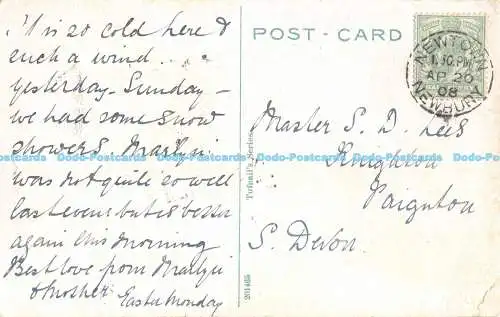 It is so cold here &
such a wind....
yesterday - Sunday -
we had some snow
showers.
was not quite so well
last even: but is better
again this morning
Best love from
& Mother Easter Monday
POST-CARD
NEWTOWN
1.30 PM
AP 20
08
NEWBURY
Master S. D. Lees
Knighton
Paignton
S. Devon.
Tofonit's Series.
201465
Dodo-Postcards Dodo-Postcards Dodo-Postcards Dodo-Postcards Dodo-Postcards Dodo-Postcards